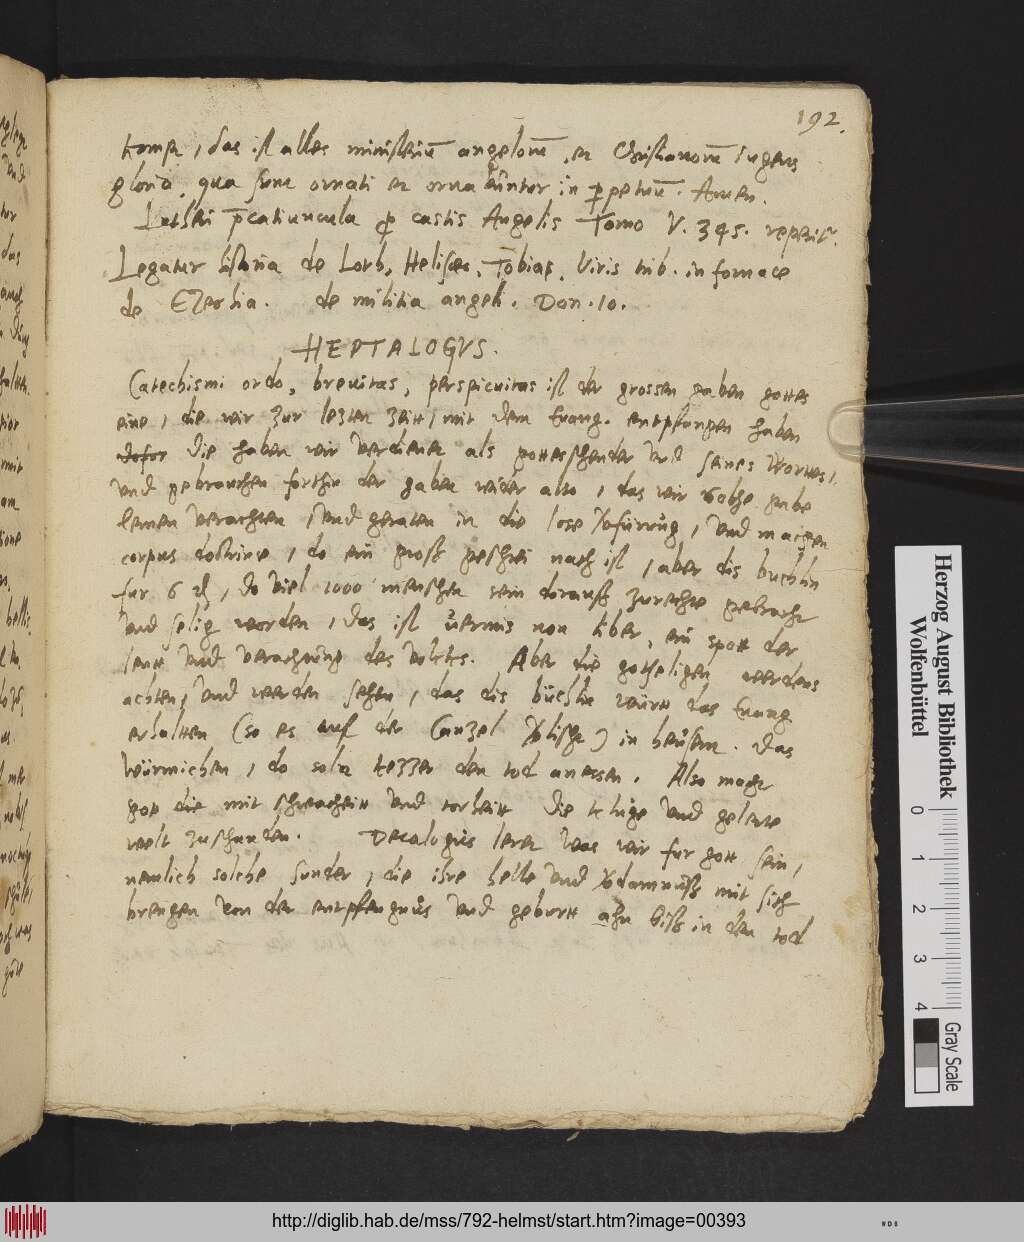 192.
kompt, das ist alles ministeriū angelorū, et Christianorū ingens
gloria, qua sunt ornati et orna buntur in perpetuū. Amen.
Lutheri p̄catiuncula pro castis Angelis Tomo V. 345. reperit.
Legatur historia de Loth, Helisæo, Tobias, Viris trib. in fornace
de Ezechia. de militia angeli. Dan. 10.
HEPTALOGVS.
Catechismi ordo, breuitas, perspicuitas ist der grossen gaben gottes
eine, die wir zur lezten zeitt, mit dem Euang. entpfangen haben
dofur die haben wir verdienet als gottesschender vnd seines Wortes,
vnd gebrauchen forthin der gaben wider also, das wir solche gabe
lernen verachten, vnd geraten in die lose verfürung, vnd machen
corpus doctrinæ, do ein groß geschrei nach ist, aber dis buchlin
fur 6 ₰, do viel 1000 menschen sein darauß zurechte gebracht
vnd selig worden, das ist vermis non liber, ein spott der
leutt vnd verachtūng des volckes. Aber die gotseligen werdens
achten, vnd werden sehen, das dis büchlin württ das Euang
erhalten (so es auf der Canzel verlischt) in heusern. Das
würmichen, do soln kezzer den tod anessen. Also macht
gott die mit schwacheitt vnd torheitt die kluge vnd gelerte
welt zuschanden. Decalogus leret was wir fur gott sein,
nemlich solche sunder, die ihre helle vnd verdamnuß mit sich
brengen von der entpfengnus vnd geburtt ahn biß in den tod
Herzog August Bibliothek
Wolfenbüttel
0 1 2 3 4
Gray Scale
http://diglib.hab.de/mss/792-helmst/start.htm?image=00393